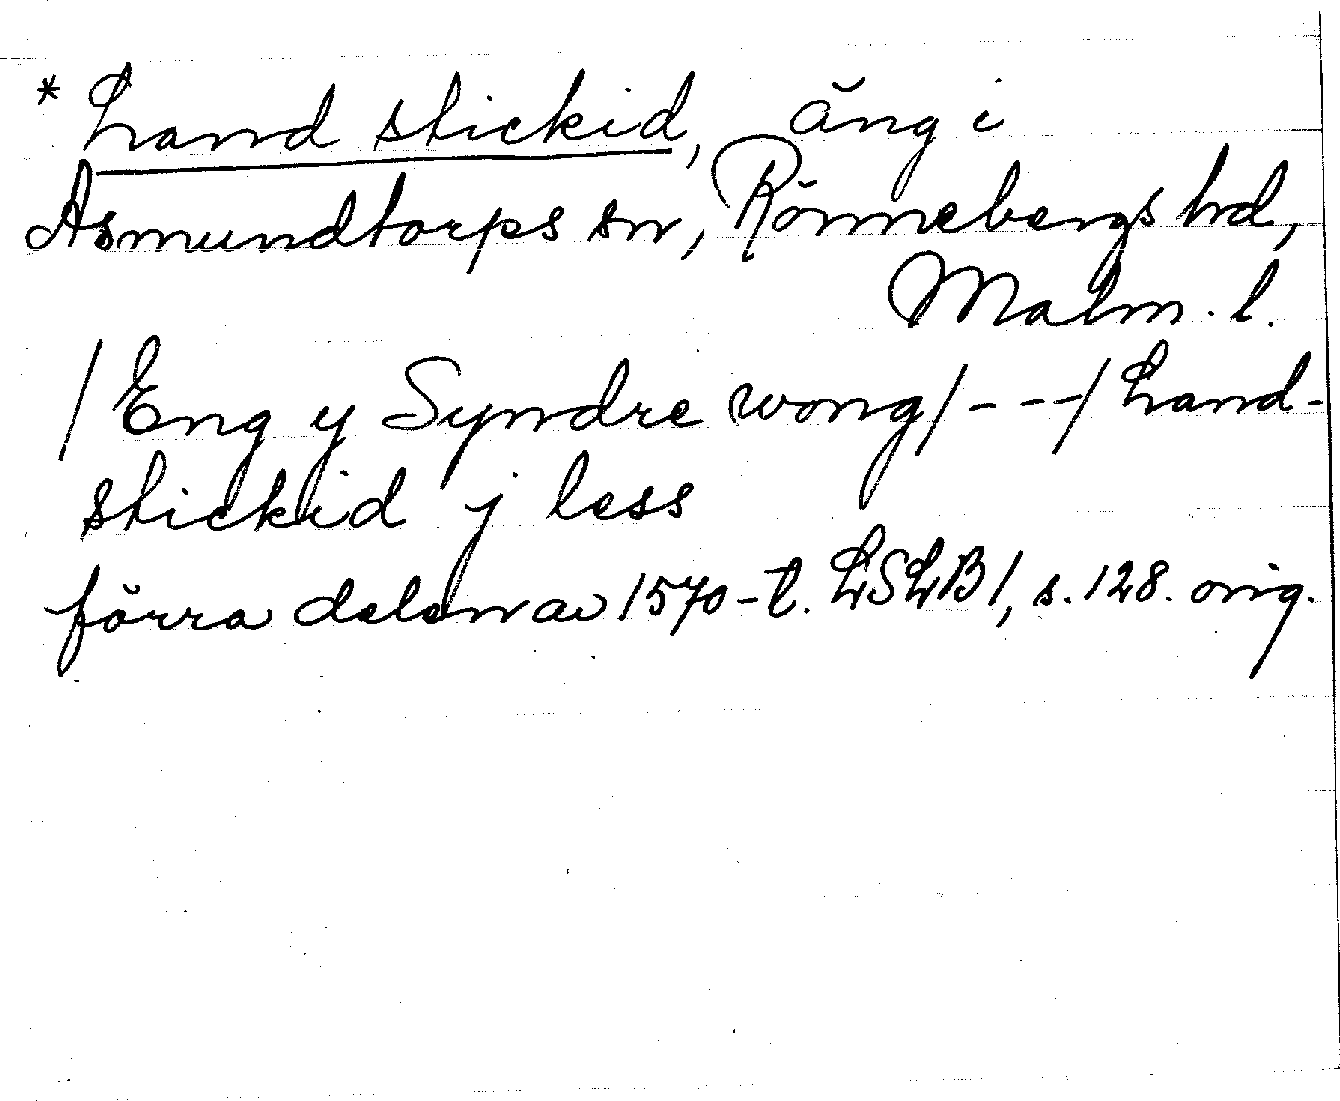 * Land stickid, äng i
Asmundtorps sn, Rönnebergs hd,
Malm. l.
/Eng y Syndre wong/---/Land-
stickid j less
förra delen av 1570-t. LSLB1, s. 128. orig.